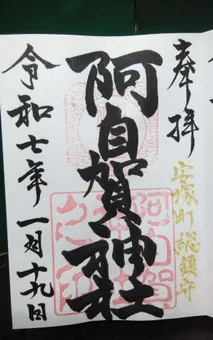 奉拝
安塚町総鎮守
阿自賀神社
令和七年一月十九日